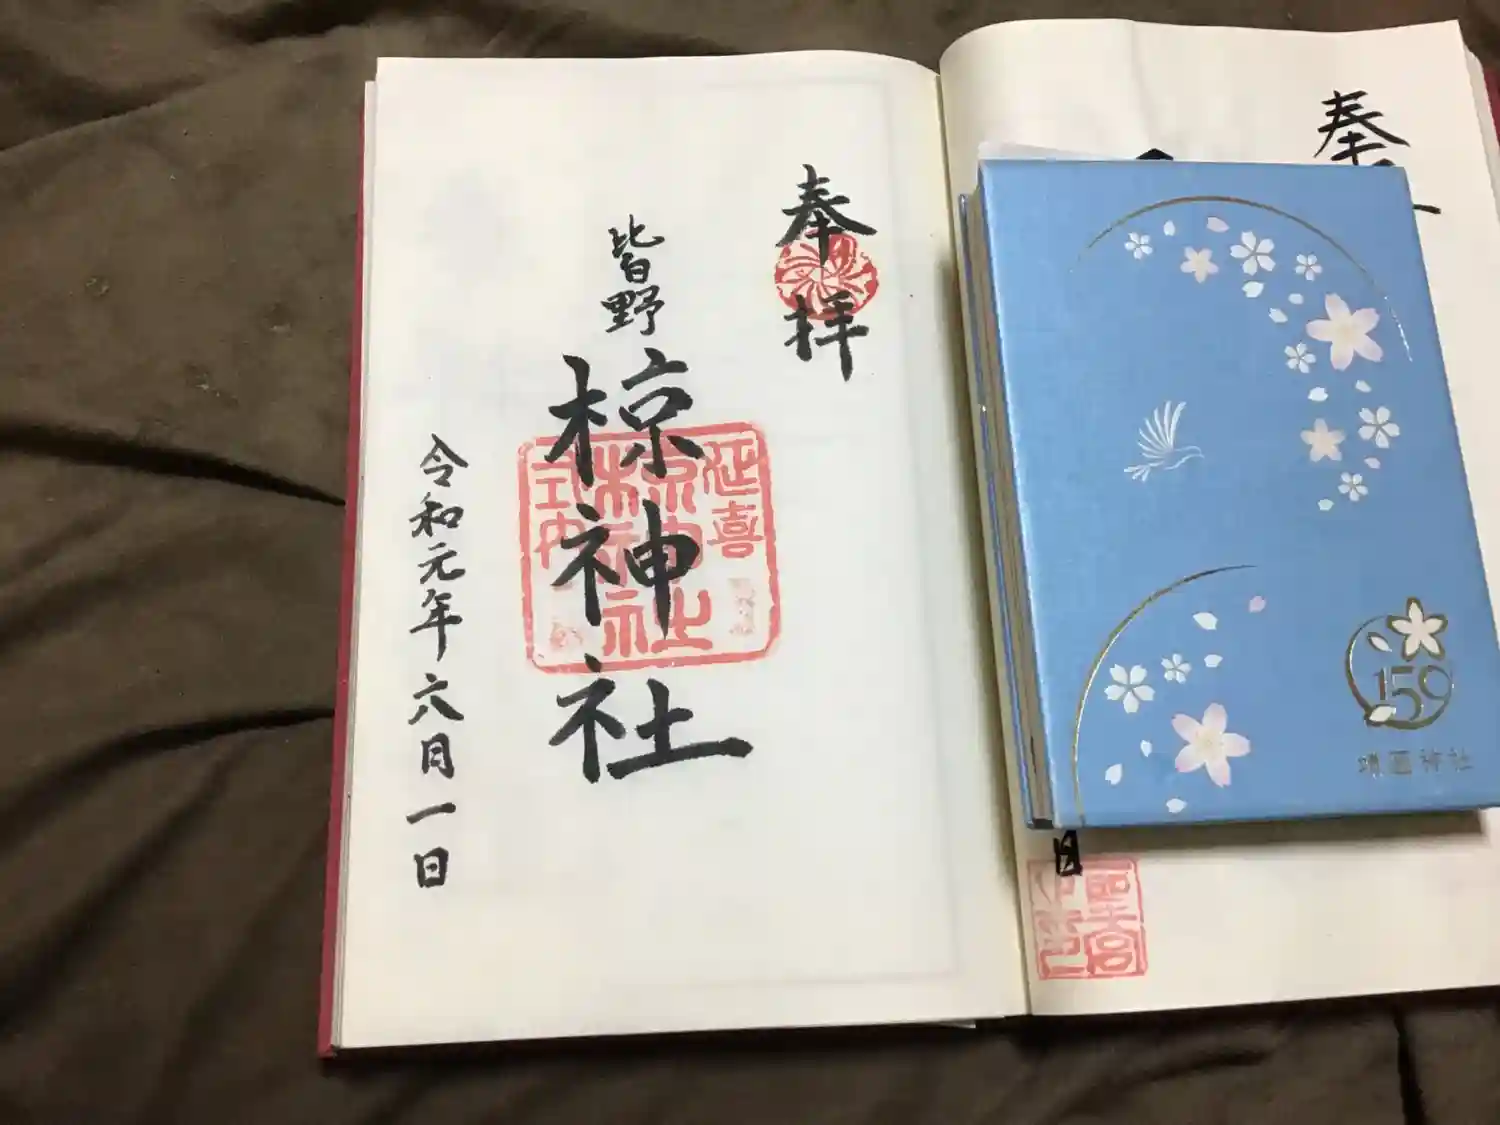 奉拝
皆野
椋神社
令和元年六月一日
延喜
椋神社
式内
奉
月
159
靖國神社